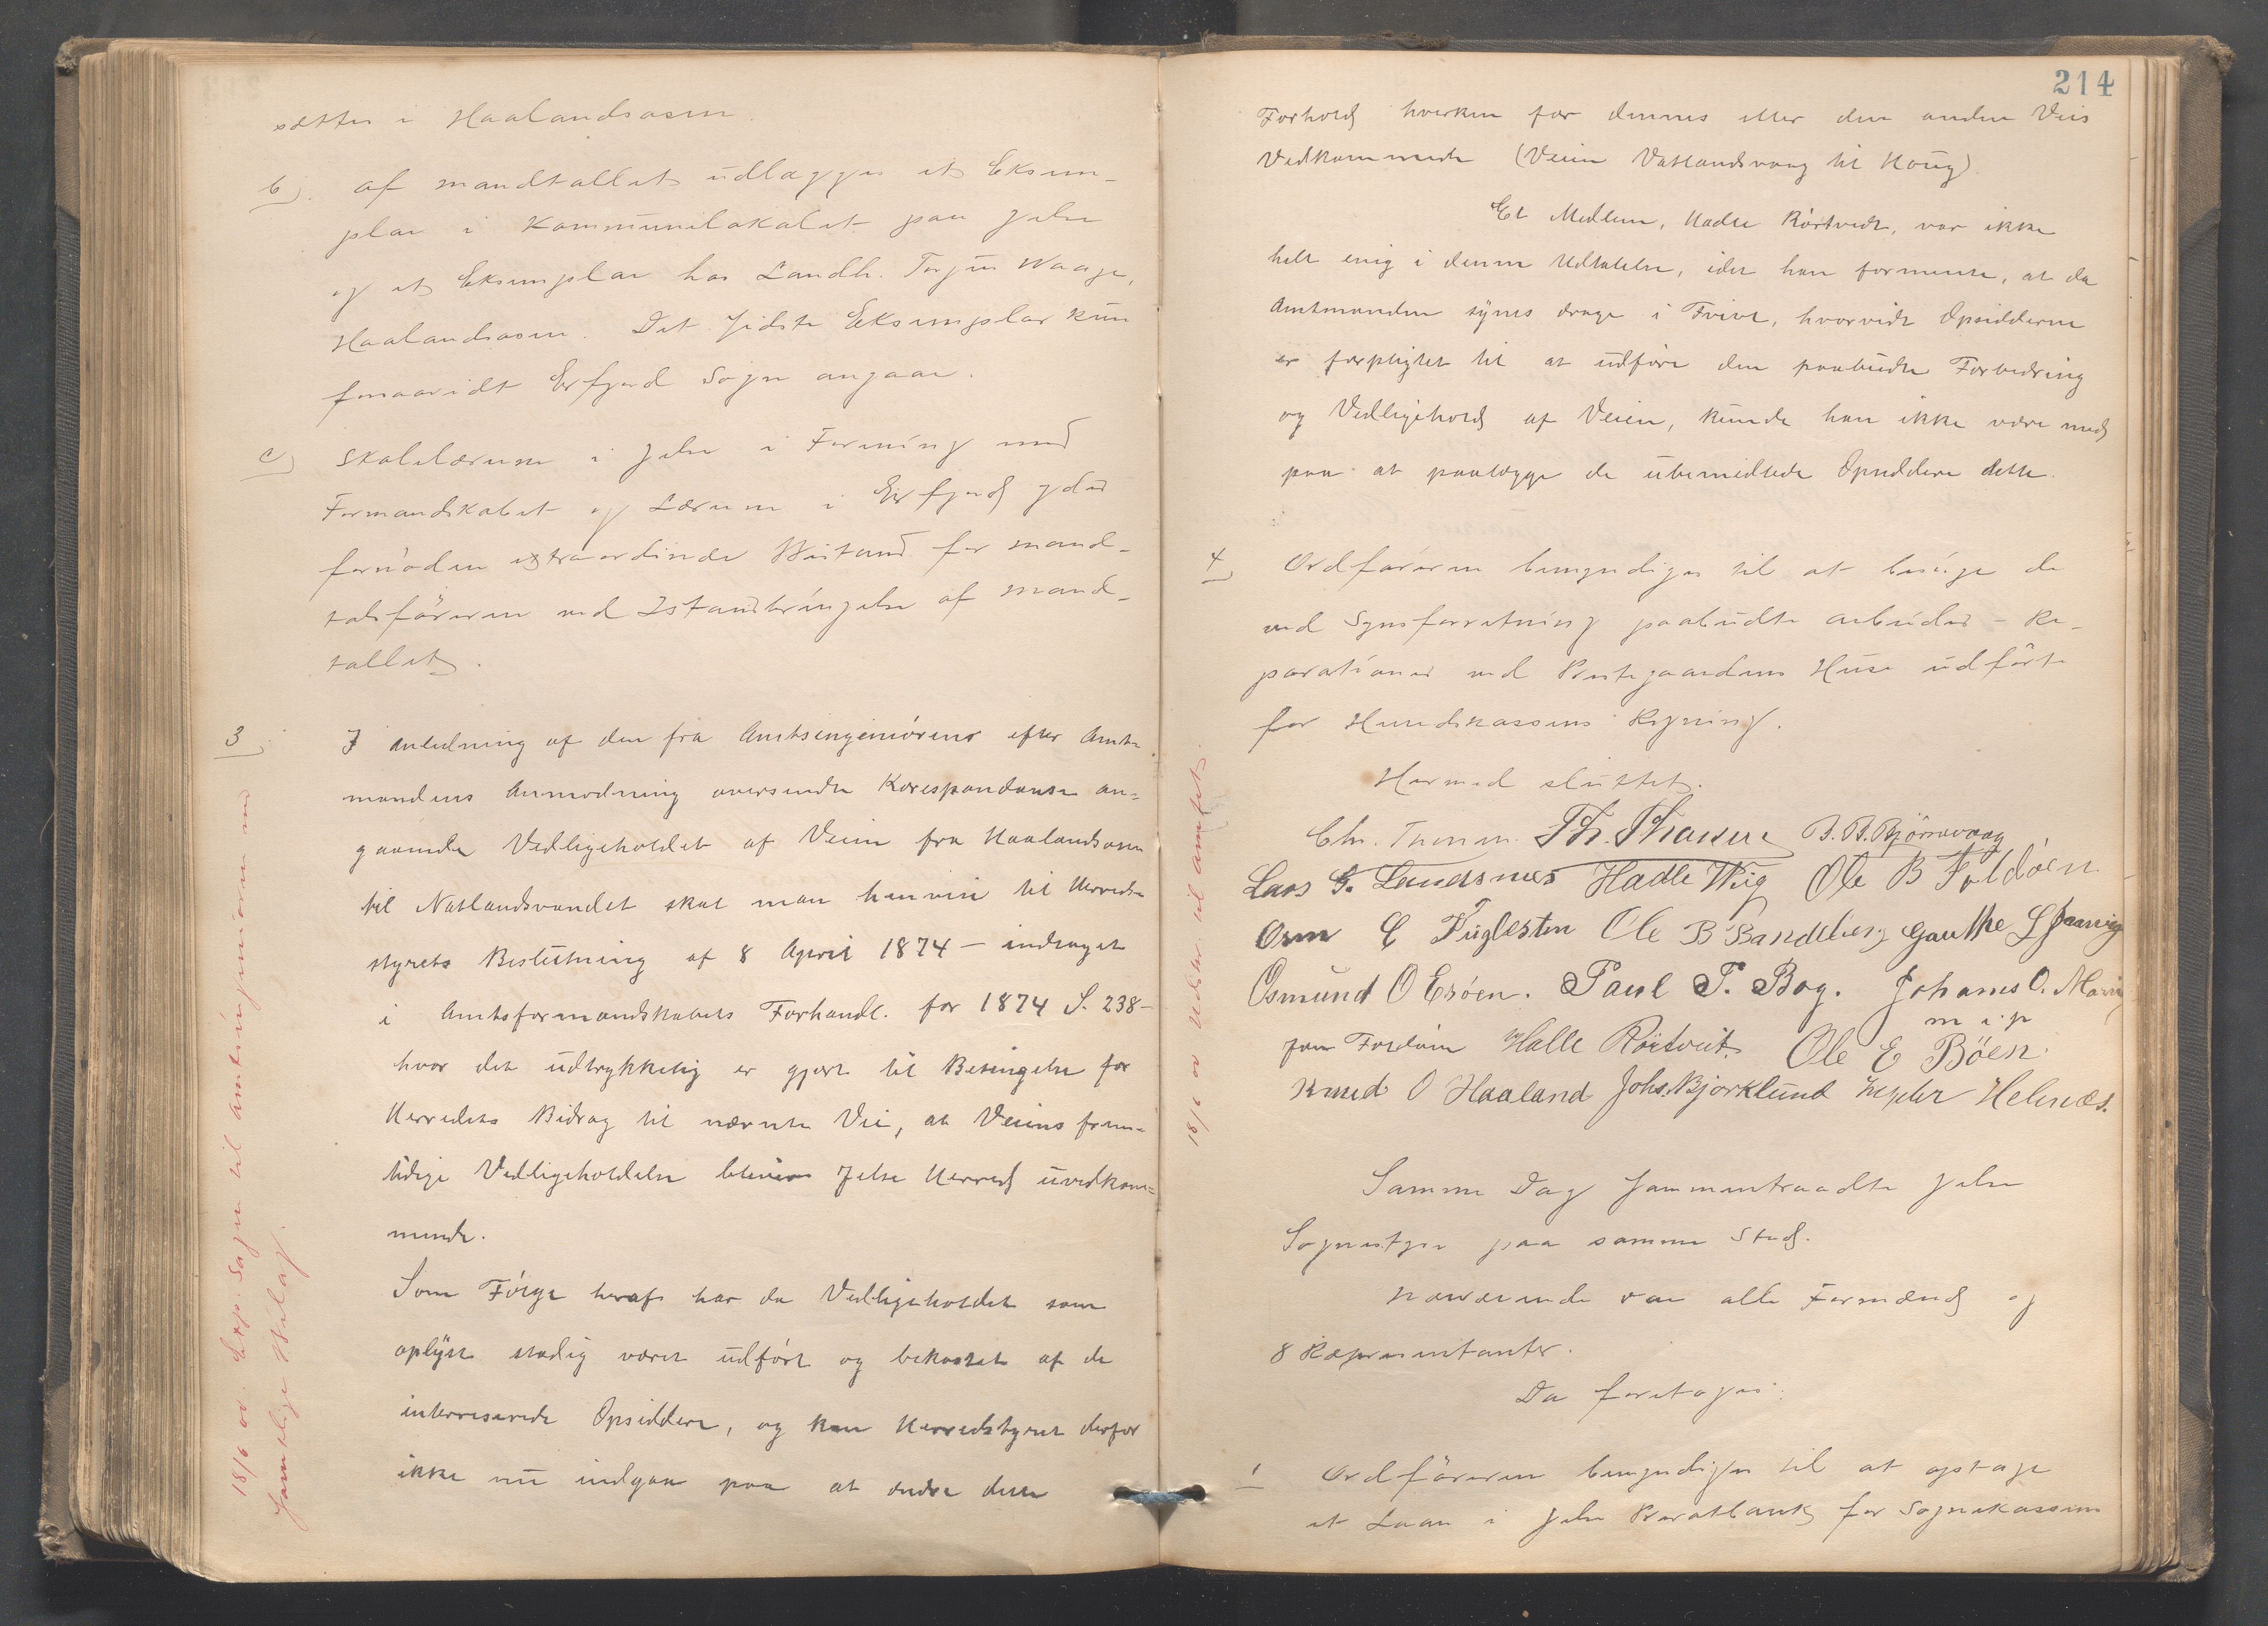 sættes i Haalandsosen.
b). af mandtallet udlægges et Eksem-
plar i Kommunelokalet paa Jelse
og et Eksemplar hos Landh. Torjus Waage,
Haalandsosen. Det sidste Eksemplar kun
forsaavidt Erfjord Sogn angaar.
c) Skolelærerne i Jelse i Forening med
Formandskabet og Læreren i Erfjord yder
fornöden extraordinær Bistand for mand-
talsföreren ved Istandbringelse af mand-
tallet.
3) I Anledning af den fra Amtsingeniörens efter Amt-
mandens Anmodning oversendte Korespondanse an-
gaaende Vedligeholdet af Veien fra Haalandsosen
til Natlandsvandet skal man henvise til Herreds-
styrets Beslutning af 8 April 1874 – indtaget
i Amtsformandskabets Forhandl. for 1874 S. 238 –
hvor det udtrykkelig er gjort til Betingelse for
Herredets Bidrag til nævnte Vei, at Veiens frem-
tidige Vedligeholdelse bliver Jelse Herred uvedkom-
mende.
Som Følge heraf har da Vedligeholdet som
oplyst stadig været udført og bekostet af de
interesserede Opsiddere, og kan Herredstyret derfor
ikke nu indgaa paa at endre dette
18/6 00. Exp. Sagen til amtsingeniören med
samtlige Bilag.
214
Forhold hverken for dennes eller den anden Veis
Vedkommende (Veien Vatlandsvaag til Houg)
Et Medlem, Hadle Rörtvedt, var ikke
helt enig i denne Udtalelse, idet han formente, at da
Amtmanden synes drage i Tvivl, hvorvidt Opsidderne
er forpligtet til at udføre den paabudte Forbedring
og Vedligehold af Veien, kunde han ikke være med
paa at paalægge de ubemidlede Opsiddere dette.
4) Ordföreren bemyndiges til at besörge de
ved Synsforretning paabudte arbeider – Re-
parationer ved Prestegaardens Huse udförte
for Herredskassens Regning.
Hermed sluttet.
Chr. Th. B. B. Bjørnevaag
Lars G. Landsnes Hadle Wiig Ole B Foldöen
Orm E Fuglesten Ole B Bandeberg Gauthe L
Osmund O Eröen. Paul P. Bog. Johannes O.
m i p
Halle Rörtveit. Ole E Böen.
Knud O Haaland Johs. Bjorklund Helnæs.
18/6 00 Udskr. til amtet.
Samme Dag sammentraadte Jelse
Sognestyre paa samme Sted.
Nærværende var alle Formænd og
8 Repræsentanter.
Da foretoges:
1 Ordföreren bemyndiges til at optage
et Laan i Jelse Privatbank for Sognekassen